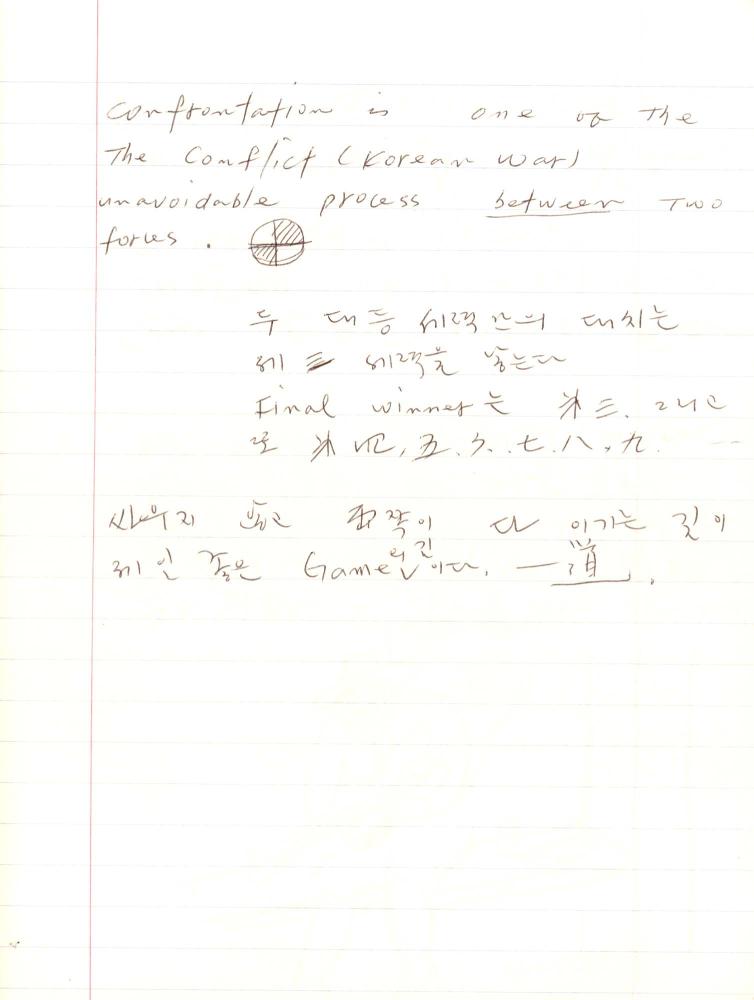 Confrontation is one of the
The Conflict (Korean War)
unavoidable process between Two
forces.
두 대등 세력간의 대치는
제三 세력을 낳는다
Final winner는 第三. 그리고
로 第四, 五. 六. 七. 八, 九.
싸우지 않고 양쪽이 다 이기는 길이
제일 좋은 Game 이다. 一道.